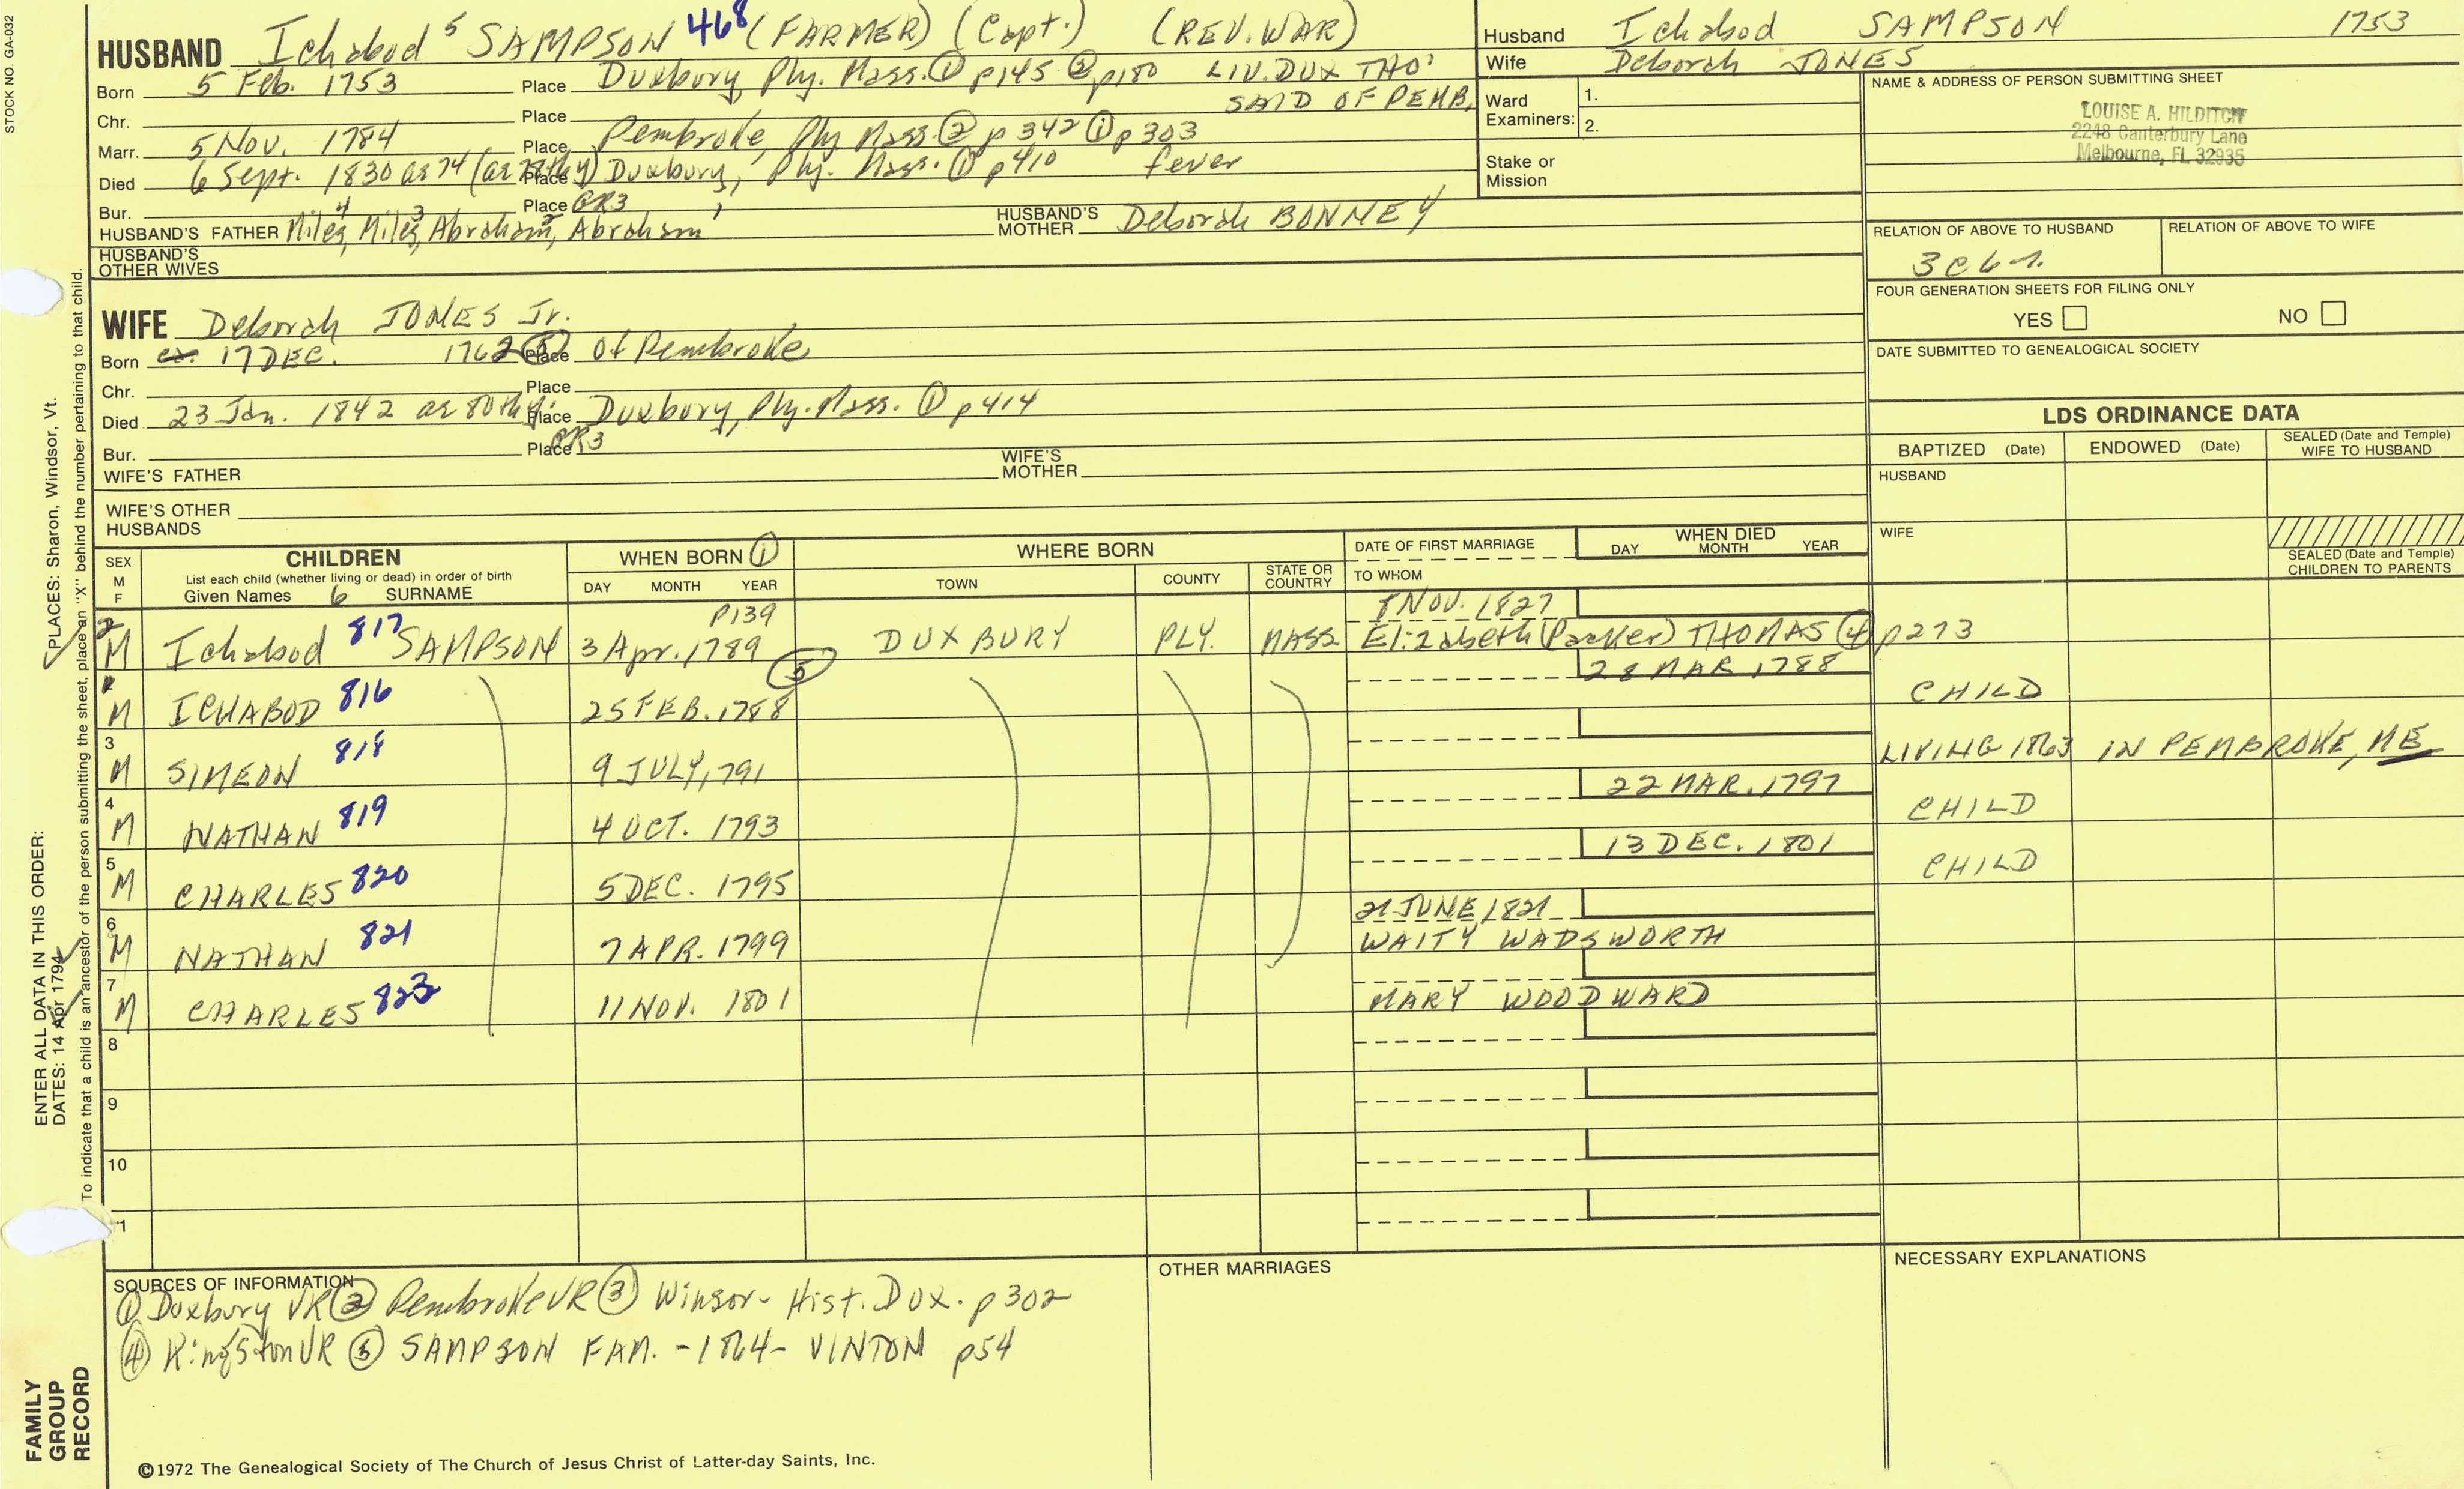 STOCK NO. GA-032
HUSBAND Ichabod 5 SAMPSON 468 (FARMER) (Capt.) (REV. WAR)
Born 5 Feb. 1753 Place Duxbury, Ply. Mass. ① p145 ② p180 LIV. DUX THO'
SAID OF PEMB.
Chr. Place
Marr. 5 Nov. 1784 Place Pembroke, Ply Mass. ② p342 ① p303
Died 6 Sept. 1830 ae 74 Place Duxbury, Ply. Mass. ① p410 fever
Bur. Place GR3
HUSBAND'S FATHER Miles 4, Miles 3, Abraham 2, Abraham 1 HUSBAND'S MOTHER Deborah BONNEY
HUSBAND'S OTHER WIVES
Husband Ichabod SAMPSON 1753
Wife Deborah JONES
Ward Examiners: 1.
2.
Stake or Mission
NAME & ADDRESS OF PERSON SUBMITTING SHEET
LOUISE A. HILDITCH
2248 Canterbury Lane
Melbourne, FL 32935
RELATION OF ABOVE TO HUSBAND RELATION OF ABOVE TO WIFE
3c6r.
FOUR GENERATION SHEETS FOR FILING ONLY
YES NO
DATE SUBMITTED TO GENEALOGICAL SOCIETY
WIFE Deborah JONES Jr.
Born ca. 17 DEC. 1762 ⑤ Place Of Pembroke
Chr. Place
Died 23 Jan. 1842 ae 80thy. Place Duxbury, Ply. Mass. ① p414
Bur. Place GR3
WIFE'S FATHER WIFE'S MOTHER
WIFE'S OTHER HUSBANDS
LDS ORDINANCE DATA
BAPTIZED (Date) ENDOWED (Date) SEALED (Date and Temple) WIFE TO HUSBAND
HUSBAND
WIFE
SEALED (Date and Temple) CHILDREN TO PARENTS
SEX M F CHILDREN WHEN BORN ① WHERE BORN DATE OF FIRST MARRIAGE WHEN DIED
List each child (whether living or dead) in order of birth
Given Names 6 SURNAME DAY MONTH YEAR TOWN COUNTY STATE OR COUNTRY TO WHOM DAY MONTH YEAR
P139 8 NOV. 1827
2 M Ichabod 817 SAMPSON 3 Apr. 1789 DUXBURY PLY. MASS. Elizabeth (Packer) THOMAS ④ p273
1 M ICHABOD 816 25 FEB. 1788 ⑤ 28 MAR 1788 CHILD
3 M SIMEON 818 9 JULY, 1791 LIVING 1863 IN PEMBROKE, ME
4 M NATHAN 819 4 OCT. 1793 22 MAR. 1797 CHILD
5 M CHARLES 820 5 DEC. 1795 13 DEC. 1801 CHILD
6 M NATHAN 821 7 APR. 1799 21 JUNE 1821 WAITY WADSWORTH
7 M CHARLES 823 11 NOV. 1801 MARY WOODWARD
8
9
10
11
SOURCES OF INFORMATION
① Duxbury VR ② Pembroke VR ③ Winsor- Hist. Dux. p302
④ Kingston VR ⑤ SAMPSON FAM. -1864- VINTON p54
OTHER MARRIAGES
NECESSARY EXPLANATIONS
©1972 The Genealogical Society of The Church of Jesus Christ of Latter-day Saints, Inc.
ENTER ALL DATA IN THIS ORDER:
DATES: 14 Apr 1794
PLACES: Sharon, Windsor, Vt.
To indicate that a child is an ancestor of the person submitting the sheet, place an "X" behind the number pertaining to that child.
FAMILY GROUP RECORD